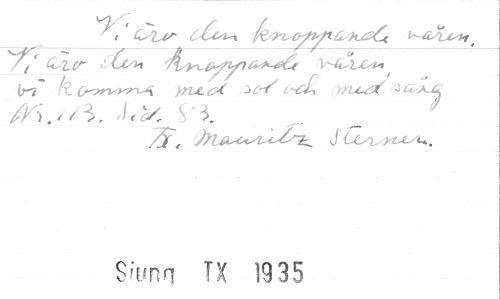 Vi äro den knoppande våren.
Vi äro den knoppande våren,
vi komma med sol och med sång
Nr. 113. Sid. 83.
Tx. Mauritz Sterner.
Sjung TX 1935